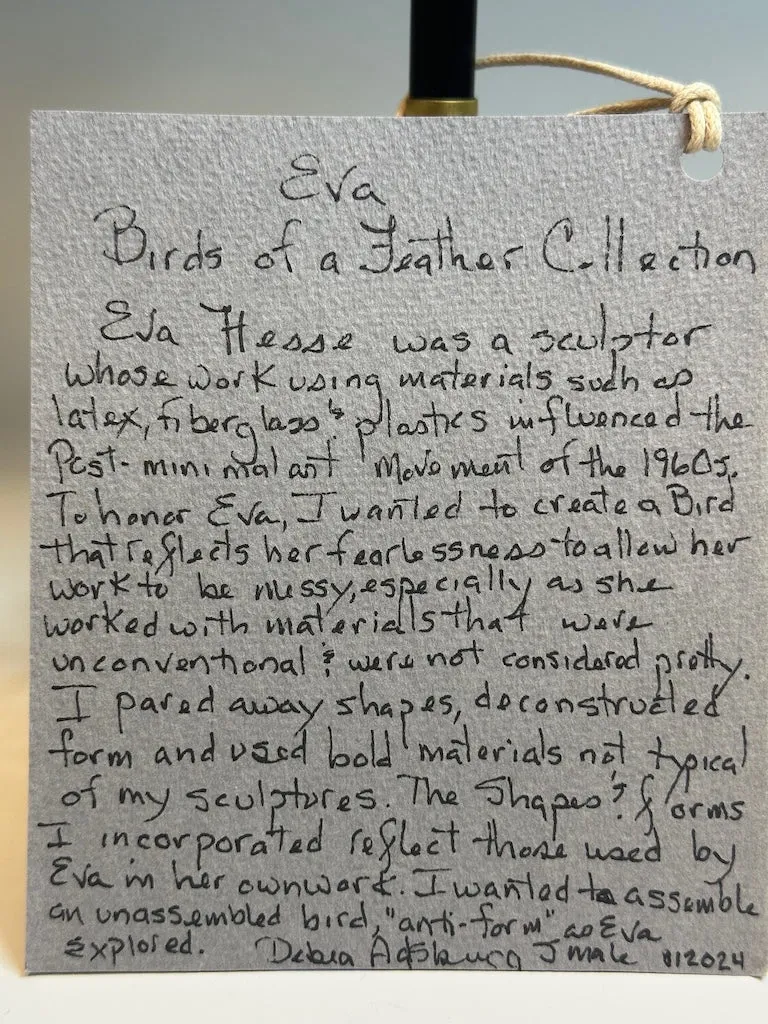 Eva
Birds of a Feather Collection
Eva Hesse was a sculptor
whose work using materials such as
latex, fiberglass & plastics influenced the
Post-minimal art movement of the 1960s.
To honor Eva, I wanted to create a Bird
that reflects her fearlessness to allow her
work to be messy, especially as she
worked with materials that were
unconventional & were not considered pretty.
I pared away shapes, deconstructed
form and used bold materials not typical
of my sculptures. The Shapes & forms
I incorporated reflect those used by
Eva in her own work. I wanted to assemble
an unassembled bird, "anti-form" as Eva
explored. Debra